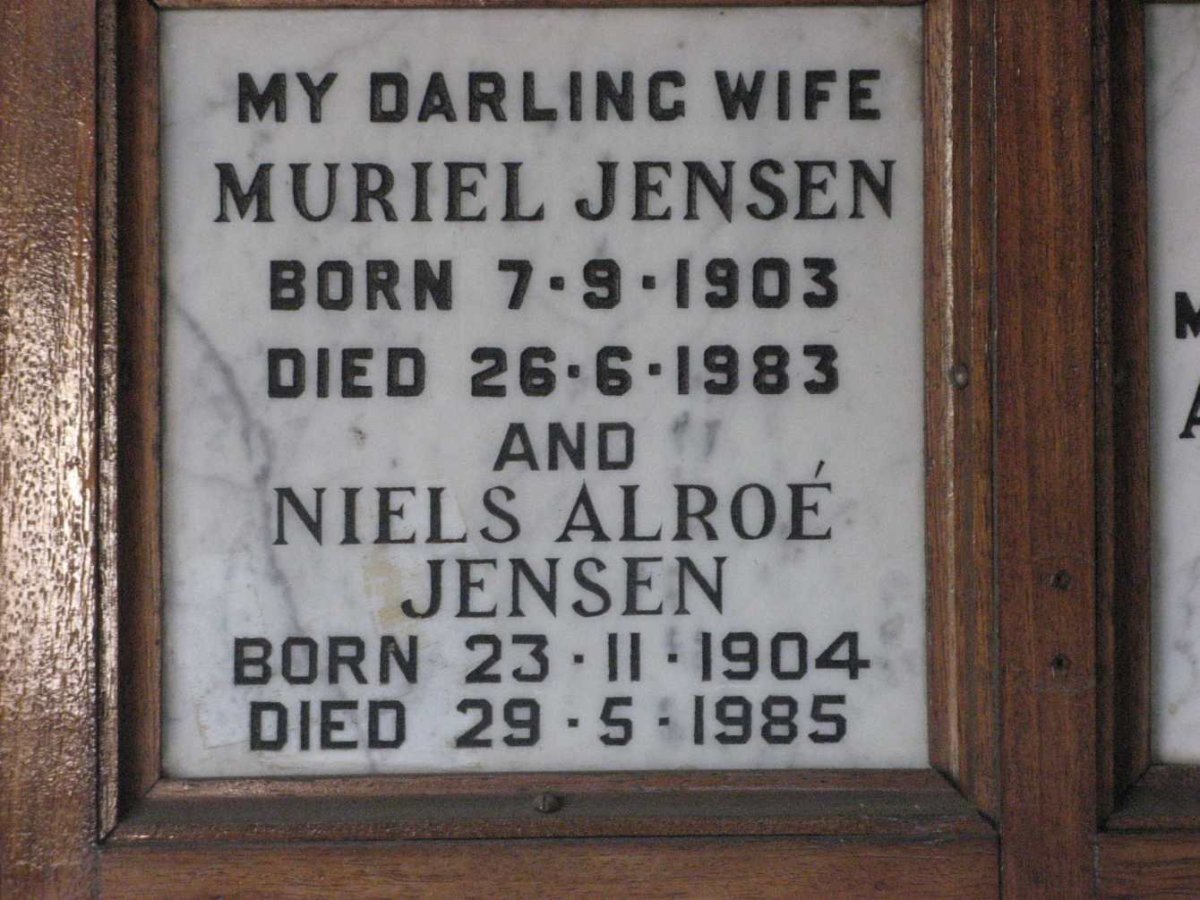 MY DARLING WIFE
MURIEL JENSEN
BORN 7·9·1903
DIED 26·6·1983
AND
NIELS ALROÉ
JENSEN
BORN 23·11·1904
DIED 29·5·1985